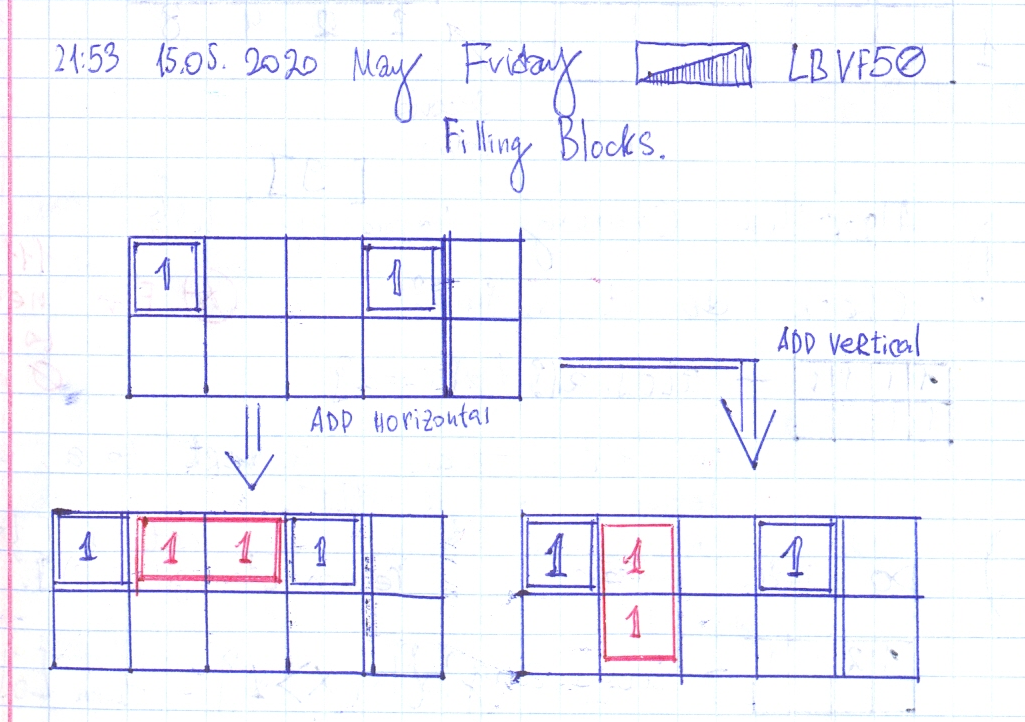 21:53 15.05.2020 May Friday LBVF50.
Filling Blocks.
1 1
ADD Vertical
ADD Horizontal
1 1 1 1
1 1 1
1